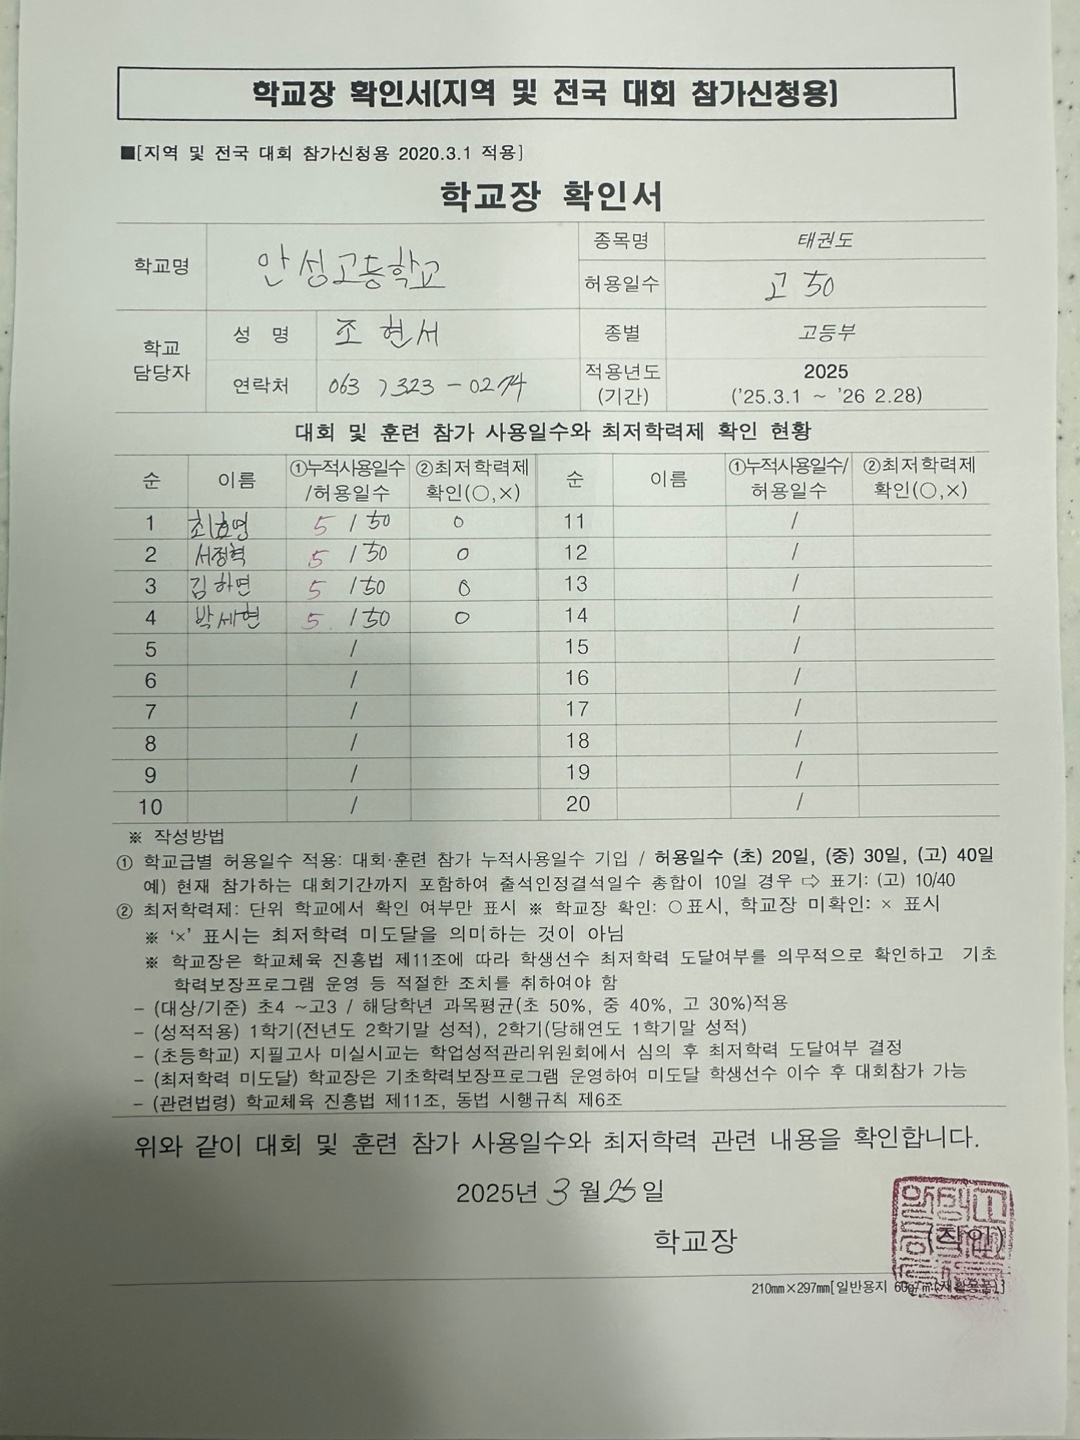 학교장 확인서[지역 및 전국 대회 참가신청용]
■[지역 및 전국 대회 참가신청용 2020.3.1 적용]
학교장 확인서
학교명 안성고등학교 종목명 태권도
허용일수 고 50
학교 담당자 성 명 조현서 종별 고등부
연락처 063 ) 323 - 0274 적용년도 (기간) 2025 ('25.3.1 ~ '26 2.28)
대회 및 훈련 참가 사용일수와 최저학력제 확인 현황
순 이름 ①누적사용일수/허용일수 ②최저학력제 확인(○,×) 순 이름 ①누적사용일수/허용일수 ②최저학력제 확인(○,×)
1 최효영 5 / 50 ○ 11 /
2 서정혁 5 / 50 ○ 12 /
3 김하면 5 / 50 ○ 13 /
4 박세현 5 / 50 ○ 14 /
5 / 15 /
6 / 16 /
7 / 17 /
8 / 18 /
9 / 19 /
10 / 20 /
※ 작성방법
① 학교급별 허용일수 적용: 대회·훈련 참가 누적사용일수 기입 / 허용일수 (초) 20일, (중) 30일, (고) 40일
예) 현재 참가하는 대회기간까지 포함하여 출석인정결석일수 총합이 10일 경우 ⇨ 표기: (고) 10/40
② 최저학력제: 단위 학교에서 확인 여부만 표시 ※ 학교장 확인: ○표시, 학교장 미확인: × 표시
※ '×' 표시는 최저학력 미도달을 의미하는 것이 아님
※ 학교장은 학교체육 진흥법 제11조에 따라 학생선수 최저학력 도달여부를 의무적으로 확인하고 기초
학력보장프로그램 운영 등 적절한 조치를 취하여야 함
- (대상/기준) 초4 ~고3 / 해당학년 과목평균(초 50%, 중 40%, 고 30%)적용
- (성적적용) 1학기(전년도 2학기말 성적), 2학기(당해연도 1학기말 성적)
- (초등학교) 지필고사 미실시교는 학업성적관리위원회에서 심의 후 최저학력 도달여부 결정
- (최저학력 미도달) 학교장은 기초학력보장프로그램 운영하여 미도달 학생선수 이수 후 대회참가 가능
- (관련법령) 학교체육 진흥법 제11조, 동법 시행규칙 제6조
위와 같이 대회 및 훈련 참가 사용일수와 최저학력 관련 내용을 확인합니다.
2025년 3월 25일
학교장 (직인)
210㎜×297㎜[일반용지 60g/㎡(재활용품)]